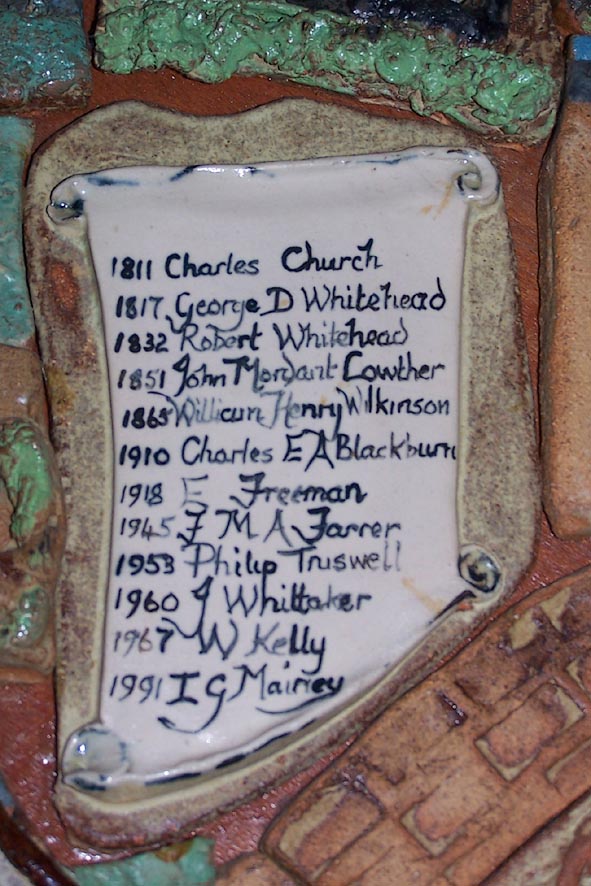 1811 Charles Church
1817 George D Whitehead
1832 Robert Whitehead
1851 John Mordant Lowther
1865 William Henry Wilkinson
1910 Charles E A Blackburn
1918 E Freeman
1945 F M A Farrer
1953 Philip Truswell
1960 J Whittaker
1967 W Kelly
1991 I G Mainey